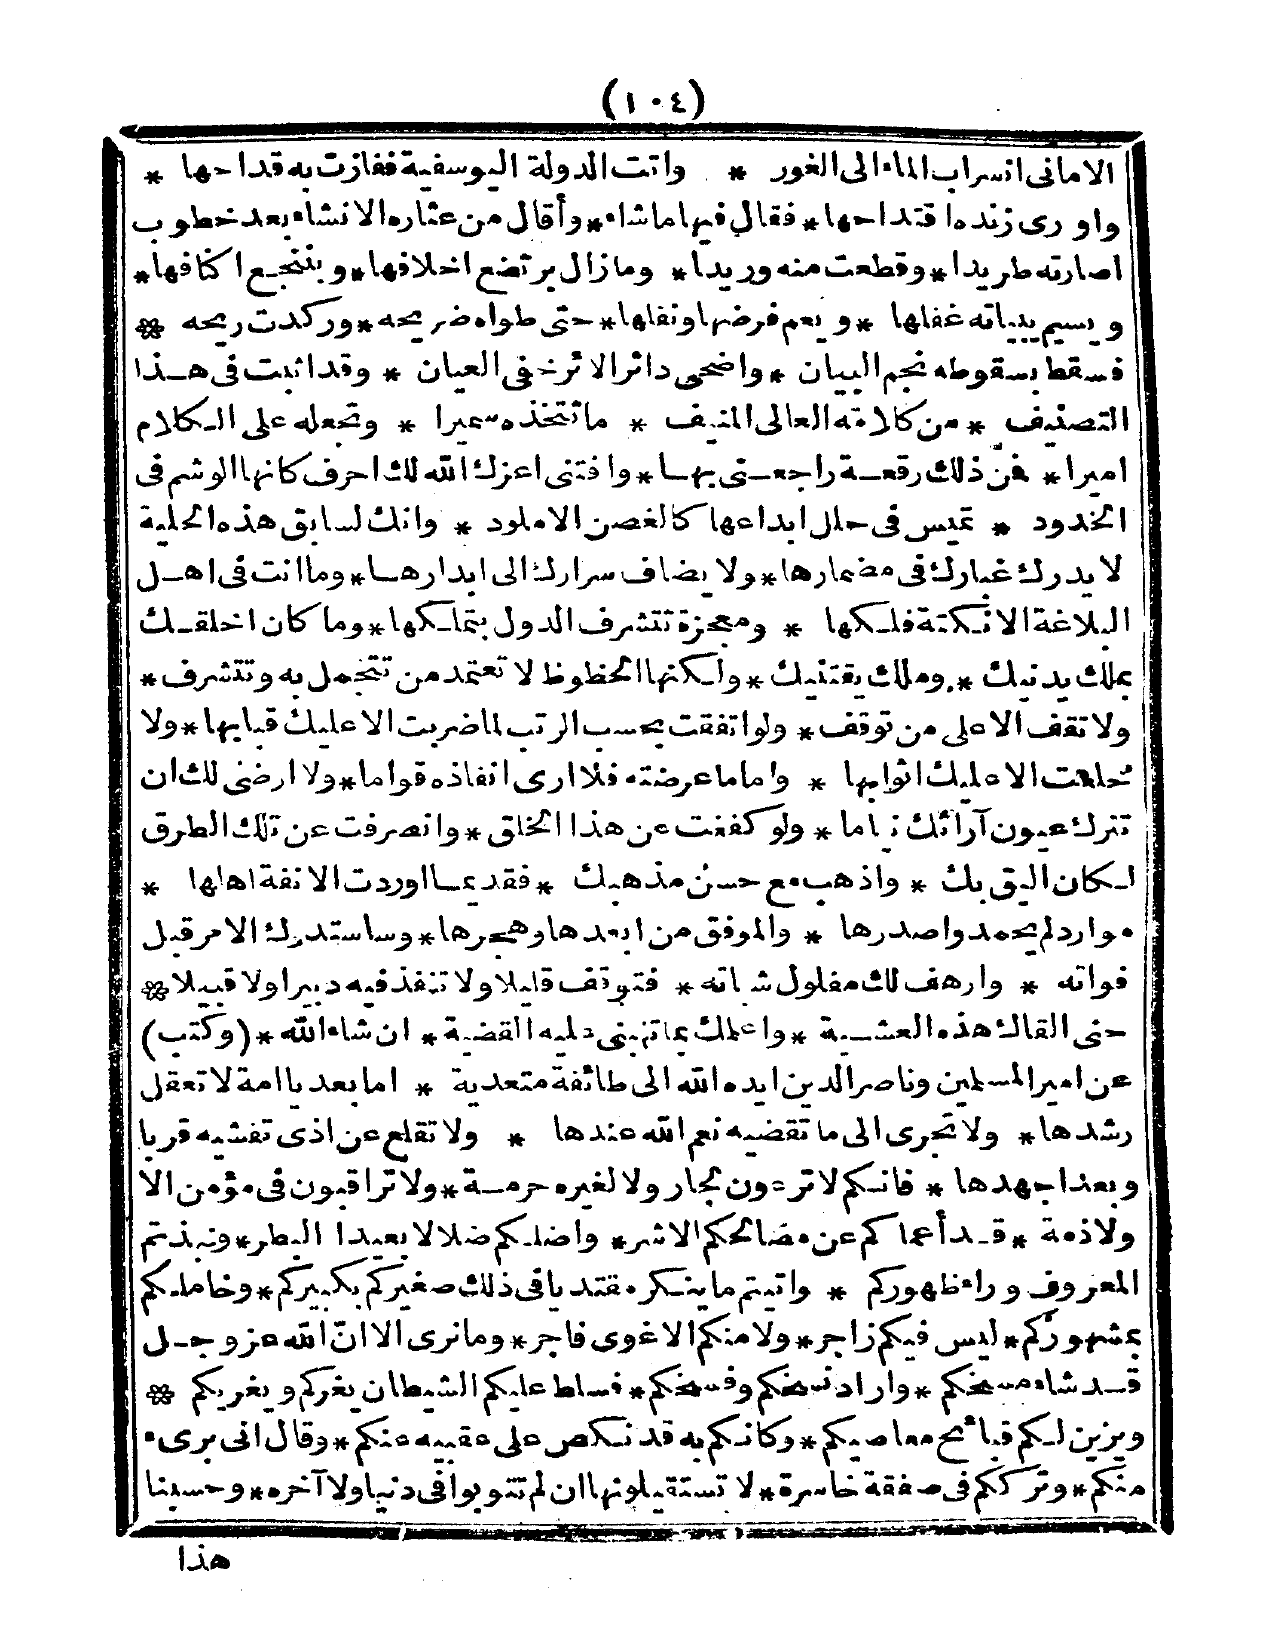 (١٠٤)
الامانى انسراب الماء الى الغور * واتت الدولة اليوسفية ففازت به قداحها *
واورى زنده اقتداحها * فقال فيها ماشاء * وأقال من عثاره الانشاء بعد خطوب
اصارته طريدا * وقطعت منه وريدا * ومازال يرتضع اخلافها * وينتجع اكنافها *
ويسيم ببيانه غفلها * ويعم فرضها ونفلها * حتى طواه ضريحه * وركدت ريحه *
فسقط بسقوطه نجم البيان * واضحى داثر الاثر خفى العيان * وقد اثبت فى هذا
التصنيف * من كلامه العالى المنيف * ماتتخذه سميرا * وتجعله على الكلام
اميرا * فمن ذلك رقعة راجعنى بها * وافتنى اعزك الله لك احرف كانها الوشم فى
الخدود * تميس فى حلل ابداعها كالغصن الاملود * وانك لسابق هذه الحلبة
لا يدرك غبارك فى مضمارها * ولا يضاف سرارك الى ابدارها * وما انت فى اهل
البلاغة الا نكتة فلكها * ومعجزة تتشرف الدول بتملكها * وما كان اخلقك
بملك يدنيك * وملك يقتنيك * ولكنها الحظوظ لا تعتمد من تتجمل به وتتشرف *
ولا تقف الا على من توقف * ولو اتفقت بحسب الرتب لما ضربت الا عليك قبابها * ولا
خلعت الا عليك اثوابها * واما ما عرضته فلا ارى انفاذه قواما * ولا ارضى لك ان
تترك عيون آرائك نياما * ولو كففت عن هذا الخلق * وانصرفت عن تلك الطرق
لكان اليق بك * واذهب مع حسن مذهبك * فقد عما اوردت الانفة اهلها *
موارد لم يحمد واصدرها * والموفق من ابعدها وهجرها * وساستدرك الامر قبل
فواته * وارهف لك مفلول شباته * فتوقف قليلا ولا تنفذ فيه دبيرا ولا قبيلا *
حتى القاك هذه العشية * واعلمك بما تنبنى عليه القضية * ان شاء الله * (وكتب)
عن امير المسلمين وناصر الدين ايده الله الى طائفة متعدية * اما بعد يا امة لا تعقل
رشدها * ولا تجرى الى ما تقتضيه نعم الله عندها * ولا تقلع عن اذى تفشيه قربا
وبعدا جهدها * فانكم لا ترعون لجار ولا لغيره حرمة * ولا تراقبون فى مؤمن الا
ولا ذمة * قد أعماكم عن مصالحكم الاشر * واضلكم ضلالا بعيدا البطر * ونبذتم
المعروف وراء ظهوركم * واتيتم ما ينكر مقتديا فى ذلك صغيركم بكبيركم * وخاملكم
بمشهوركم * ليس فيكم زاجر * ولا منكم الا غوى فاجر * وما نرى الا انّ الله عز وجل
قد شاء مسخكم * واراد نسخكم وفسخكم * فسلط عليكم الشيطان يغركم ويغريكم *
ويزين لكم قبائح معاصيكم * وكانكم به قد نكص على عقبيه عنكم * وقال انى برىء
منكم * وترككم فى صفقة خاسرة * لا تستقيلونها ان لم تتوبوا فى دنيا ولا آخره * وحسبنا
هذا